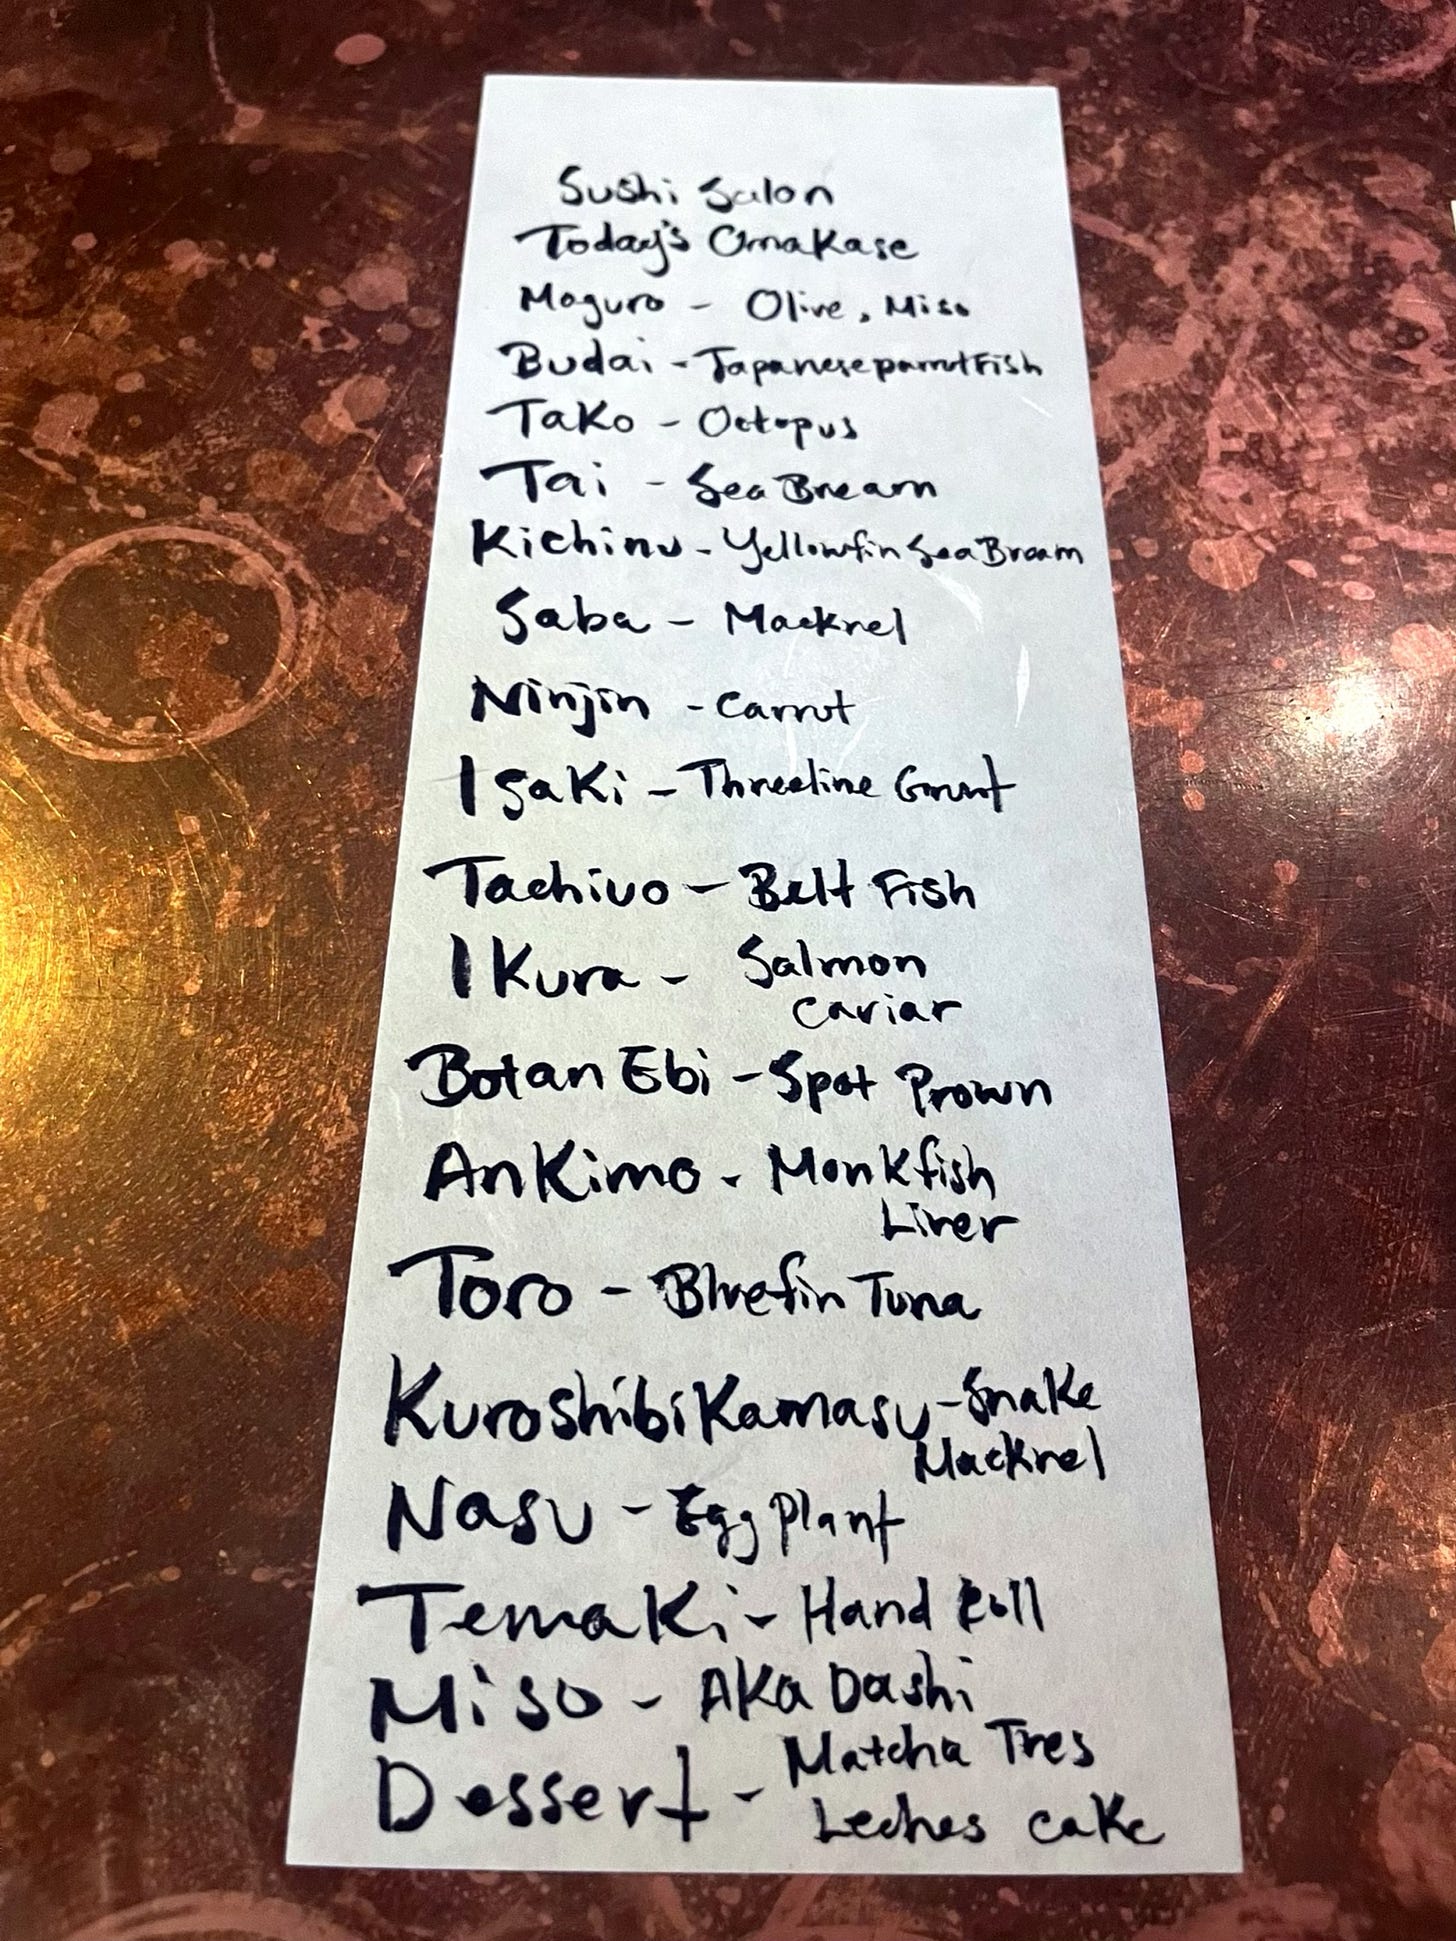 Sushi Salon
Today's Omakase
Maguro - Olive, Miso
Budai - Japanese parrotFish
Tako - Octopus
Tai - Sea Bream
Kichinu - Yellowfin Sea Bream
Saba - Mackrel
Ninjin - Carrot
Isaki - Threeline Grunt
Tachiuo - Belt Fish
Ikura - Salmon
Caviar
Botan Ebi - Spot Prown
Ankimo - Monkfish
Liver
Toro - Bluefin Tuna
Kuroshibikamasu - Snake
Mackrel
Nasu - Egg Plant
Temaki - Hand Roll
Miso - Aka Dashi
Dessert - Matcha Tres
Leches cake